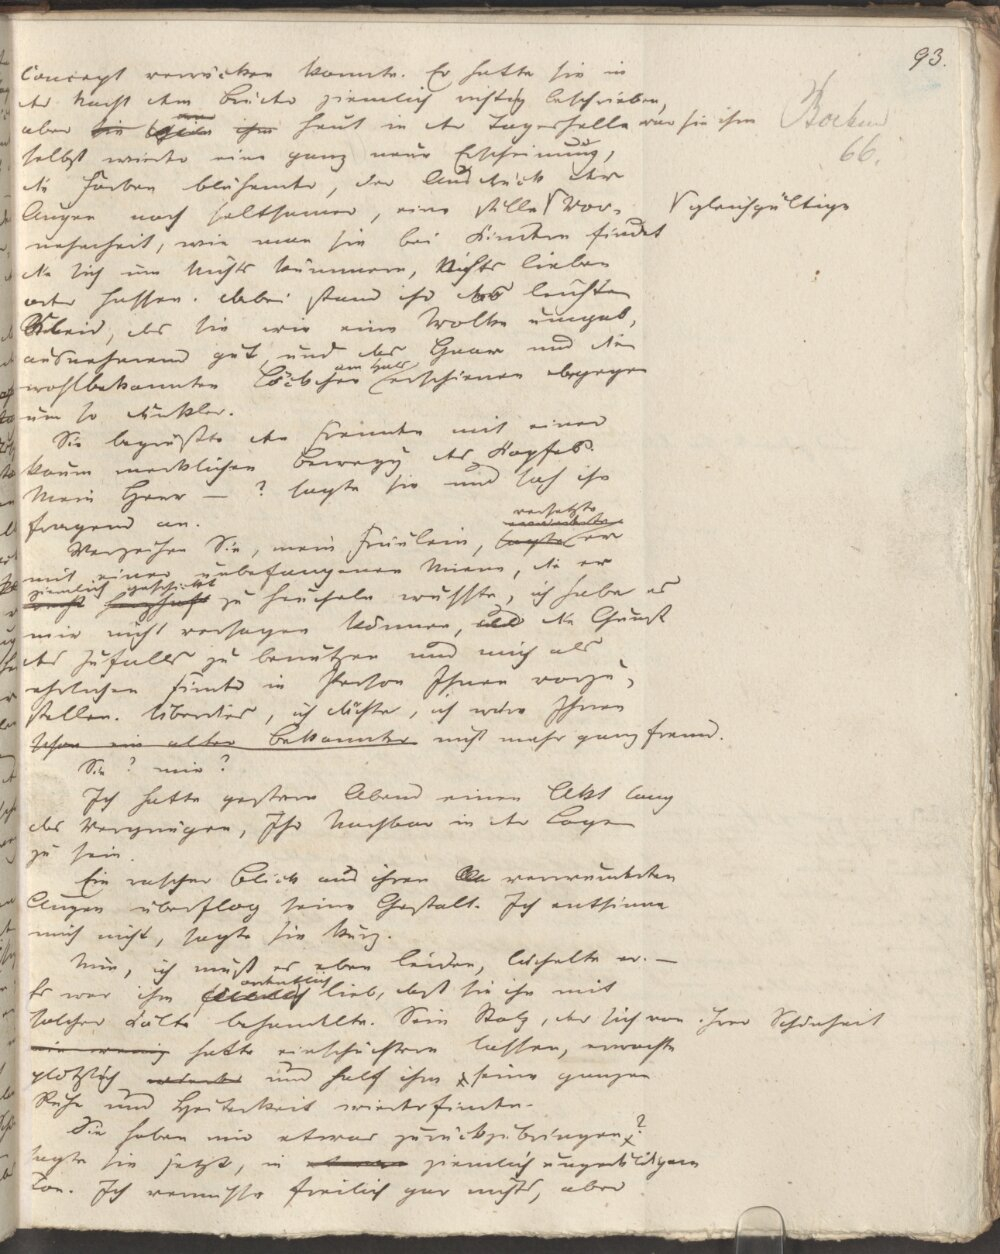 93.
Concept verrücken konnte. Er hatte sie in
der Nacht dem Bruder ziemlich richtig beschrieben,
aber heut in der Tageshelle war sie ihm
66.
selbst wieder eine ganz neue Erscheinung,
die Farben blühender, der Ausdruck der
Augen noch seltsamer, eine stille Vor- gleichgültige
nehmheit, wie man sie bei Kindern findet
die sich um Nichts kümmern, Nichts lieben
oder hassen. Dabei stand ihr das leichte
Kleid, das sie wie eine Wolke umgab,
ausnehmend gut und das Haar und die
wohlbekannten Löckchen am Hals erschienen dagegen
um so dunkler.
Sie begrüßte den Fremden mit einer
kaum merklichen Bewegg des Kopfes.
Mein Herr — ? sagte sie und sah ihn
fragend an.
versetzte
Verzeihen Sie, mein Fräulein, sagte er
mit einer unbefangenen Miene, die er
ziemlich geschickt
zu heucheln wusste, ich habe es
mir nicht versagen können, die Gunst
des Zufalls zu benutzen und mich als
ehrlichen Finder in Person Ihnen vorzu-
stellen. Überdies, ich dächte, ich wäre Ihnen
schon ein alter Bekannter nicht mehr ganz fremd.
Sie? mir?
Ich hatte gestern Abend einen Akt lang
das Vergnügen, Ihr Nachbar in der Loge
zu sein.
Ein rascher Blick aus ihren verwunderten
Augen überflog seine Gestalt. Ich entsinne
mich nicht, sagte sie kurz.
Nun, ich muß es eben leiden, lächelte er. —
Es war ihm ordentlich lieb, daß sie ihn mit
solcher Kälte behandelte. Sein Stolz, der sich von ihrer Schönheit
ein wenig hatte einschüchtern lassen, erwachte
plötzlich wieder und half ihm seine ganze
Ruhe und Heiterkeit wiederfinden.
Sie haben mir etwas zurückzubringen?
sagte sie jetzt, in ziemlich ungeduldigem
Ton. Ich vermisse freilich gar nichts, aber